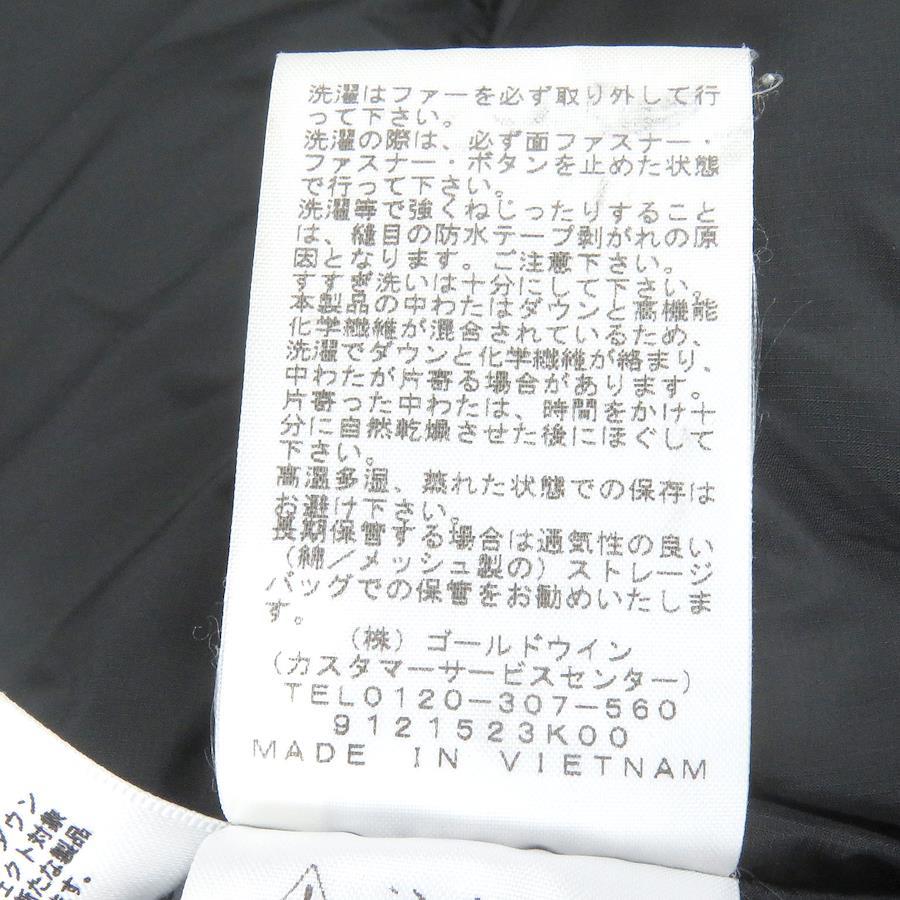 洗濯はファーを必ず取り外して行
って下さい。
洗濯の際は、必ず面ファスナー・
ファスナー・ボタンを止めた状態
で行って下さい。
洗濯等で強くねじったりすること
は、縫目の防水テープ剥がれの原
因となります。ご注意下さい。
すすぎ洗いは十分にして下さい。
本製品の中わたはダウンと高機能
化学繊維が混合されているため、
洗濯でダウンと化学繊維が絡まり、
中わたが片寄る場合があります。
片寄った中わたは、時間をかけ十
分に自然乾燥させた後にほぐして
下さい。
高温多湿、蒸れた状態での保存は
お避け下さい。
長期保管する場合は通気性の良い
(綿/メッシュ製の)ストレージ
バッグでの保管をお勧めいたしま
す。
(株)ゴールドウイン
(カスタマーサービスセンター)
TEL0120-307-560
9121523K00
MADE IN VIETNAM
ダウン
ェクト対象
新たな製品
です。